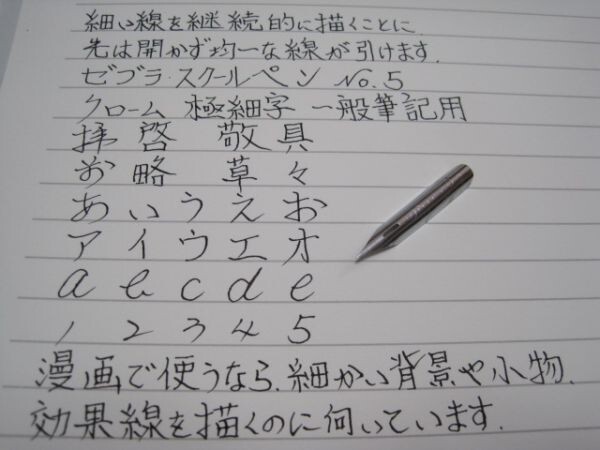 細い線を継続的に描くことに
先は開かず均一な線が引けます.
ゼブラ・スクールペン No.5
クローム 極細字 一般筆記用
拝啓 敬具
お略 草々
あいうえお
アイウエオ
a b c d e
1 2 3 4 5
漫画で使うなら、細かい背景や小物、
効果線を描くのに向いています.